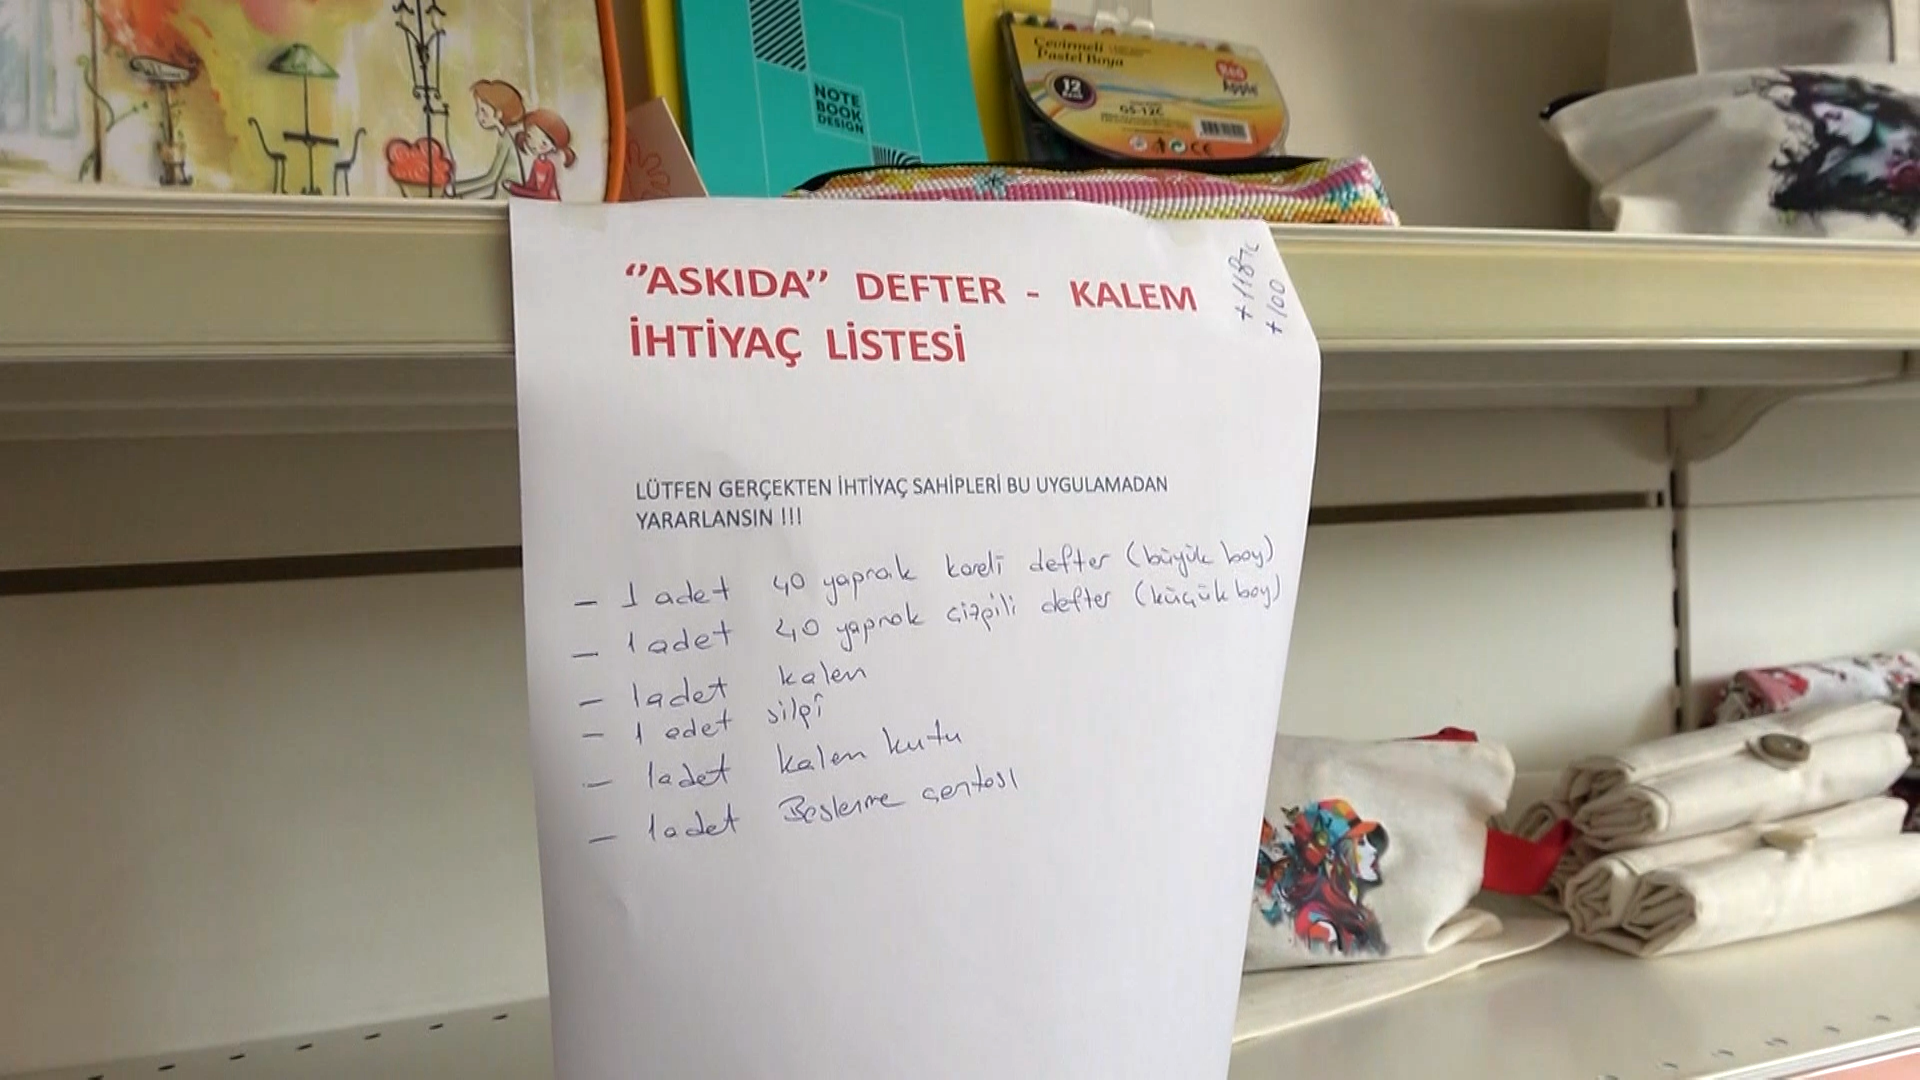 NOTE
BOOK
DESIGN
Çevirmeli
Pastel Boya
12
Red
Apple
GS-12C
CE
‘’ASKIDA’’ DEFTER - KALEM
İHTİYAÇ LİSTESİ
+118TL
+100
LÜTFEN GERÇEKTEN İHTİYAÇ SAHİPLERİ BU UYGULAMADAN
YARARLANSIN !!!
- 1 adet 40 yaprak kareli defter (büyük boy)
- 1 adet 40 yaprak çizgili defter (küçük boy)
- 1 adet kalem
- 1 adet silgi
- 1 adet kalem kutu
- 1 adet Beslenme çantası